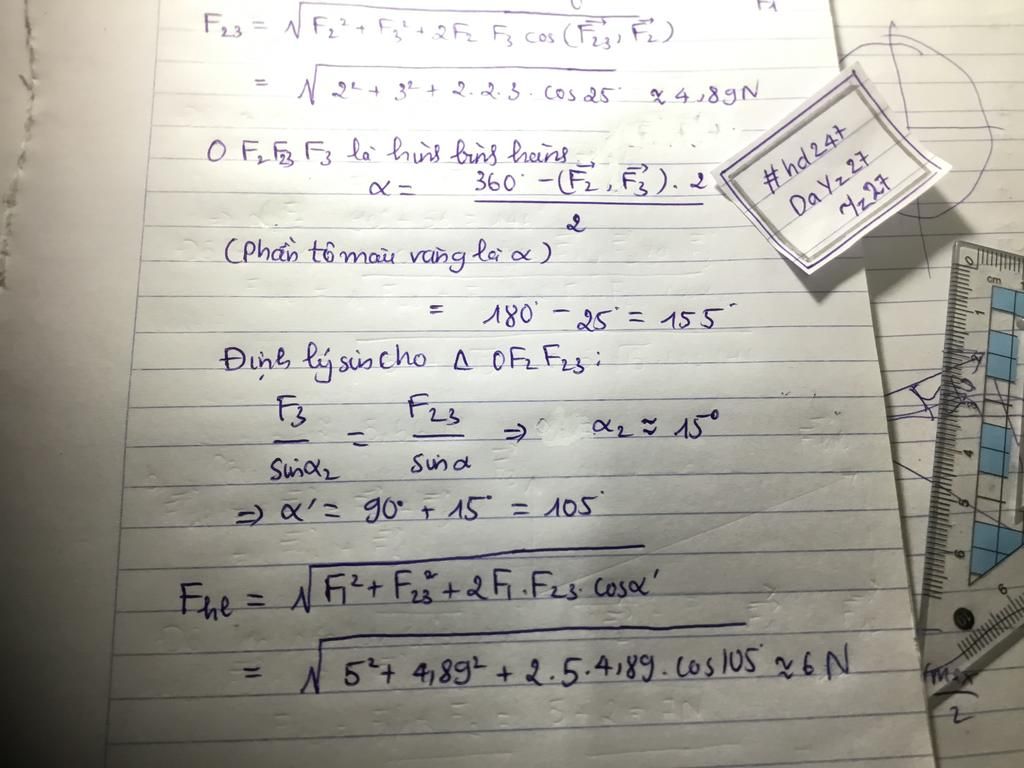 F₁
F₂₃ = √(F₂² + F₃² + 2F₂ F₃ cos(F₂₃→, F₂→))
= √(2² + 3² + 2.2.3. cos25°) ≈ 4,89N
O F₂F₂₃ F₃ là hình bình hành
α = (360° - (F₂→, F₃→). 2) / 2
(Phần tô màu vàng là α)
= 180° - 25° = 155°
Định lý sin cho Δ OF₂F₂₃:
F₃ / sinα₂ = F₂₃ / sinα ⇒ α₂ ≈ 15°
⇒ α' = 90° + 15° = 105°
Fhl = √(F₁² + F₂₃² + 2F₁.F₂₃.cosα')
= √(5² + 4,89² + 2.5.4,89.cos105°) ≈ 6N
#hd247
DaYz27
Mz27
0
cm
1
4
5
6
6
fmax / 2